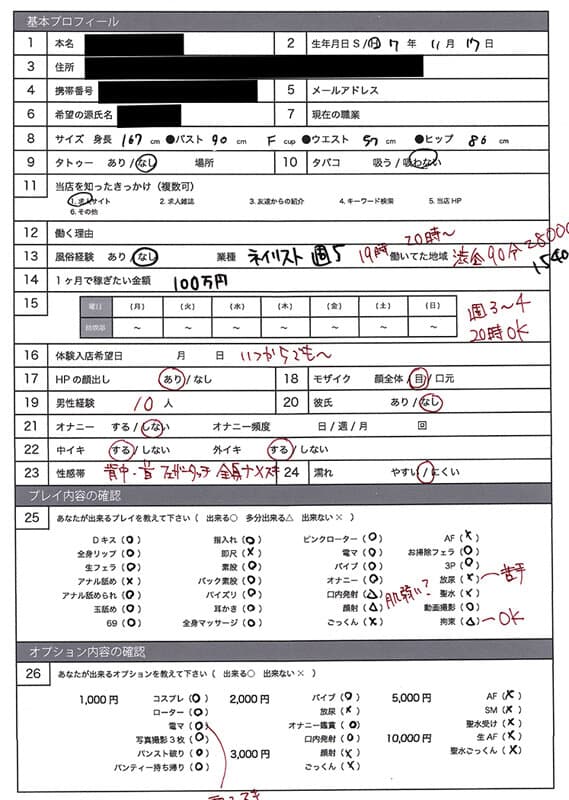 基本プロフィール
1 本名 2 生年月日 S/H 7 年 11 月 17 日
3 住所
4 携帯番号 5 メールアドレス
6 希望の源氏名 7 現在の職業
8 サイズ 身長 167 cm ●バスト 90 cm F cup ●ウエスト 57 cm ●ヒップ 86 cm
9 タトゥー あり/なし 場所 10 タバコ 吸う/吸わない
11 当店を知ったきっかけ(複数可)
1. 求人サイト 2. 求人雑誌 3. 友達からの紹介 4. キーワード検索 5. 当店HP
6. その他
12 働く理由 20時〜
13 風俗経験 あり/なし 業種 ネイリスト 週5 19時 働いてた地域 90分 28000
14 1ヶ月で稼ぎたい金額 100万円
15 曜日 (月) (火) (水) (木) (金) (土) (日) 週3〜4
〜 〜 〜 〜 〜 〜 〜 20時OK
16 体験入店希望日 月 日 いつからでも〜
17 HPの顔出し あり/なし 18 モザイク 顔全体/目/口元
19 男性経験 10 人 20 彼氏 あり/なし
21 オナニー する/しない オナニー頻度 日/週/月 回
22 中イキ する/しない 外イキ する/しない
23 性感帯 背中・首 フェザータッチ 全身ナメスキ 24 濡れ やすい/にくい
プレイ内容の確認
25 あなたが出来るプレイを教えて下さい ( 出来る○ 多分出来る△ 出来ない× )
Dキス (○) 指入れ (○) ピンクローター (○) AF (×)
全身リップ (○) 即尺 (×) 電マ (○) お掃除フェラ (○)
生フェラ (○) 素股 (○) バイブ (○) 3P (○)
アナル舐め (×) バック素股 (○) オナニー (○) 放尿 (×) 〜苦手
アナル舐められ (○) パイズリ (○) 口内発射 (△) 肌弱い? 聖水 (×)
玉舐め (○) 耳かき (○) 顔射 (△) 動画撮影 (○)
69 (○) 全身マッサージ (○) ごっくん (×) 拘束 (△) 〜OK
オプション内容の確認
26 あなたが出来るオプションを教えて下さい ( 出来る○ 出来ない× )
1,000円 コスプレ (○) 2,000円 バイブ (○) 5,000円 AF (×)
ローター (○) 放尿 (×) SM (×)
電マ (○) オナニー鑑賞 (○) 聖水受け (×)
写真撮影3枚 (○) 口内発射 (○) 10,000円 生AF (×)
パンスト破り (○) 3,000円 顔射 (×) 聖水ごっくん (×)
パンティー持ち帰り (○) ごっくん (×)